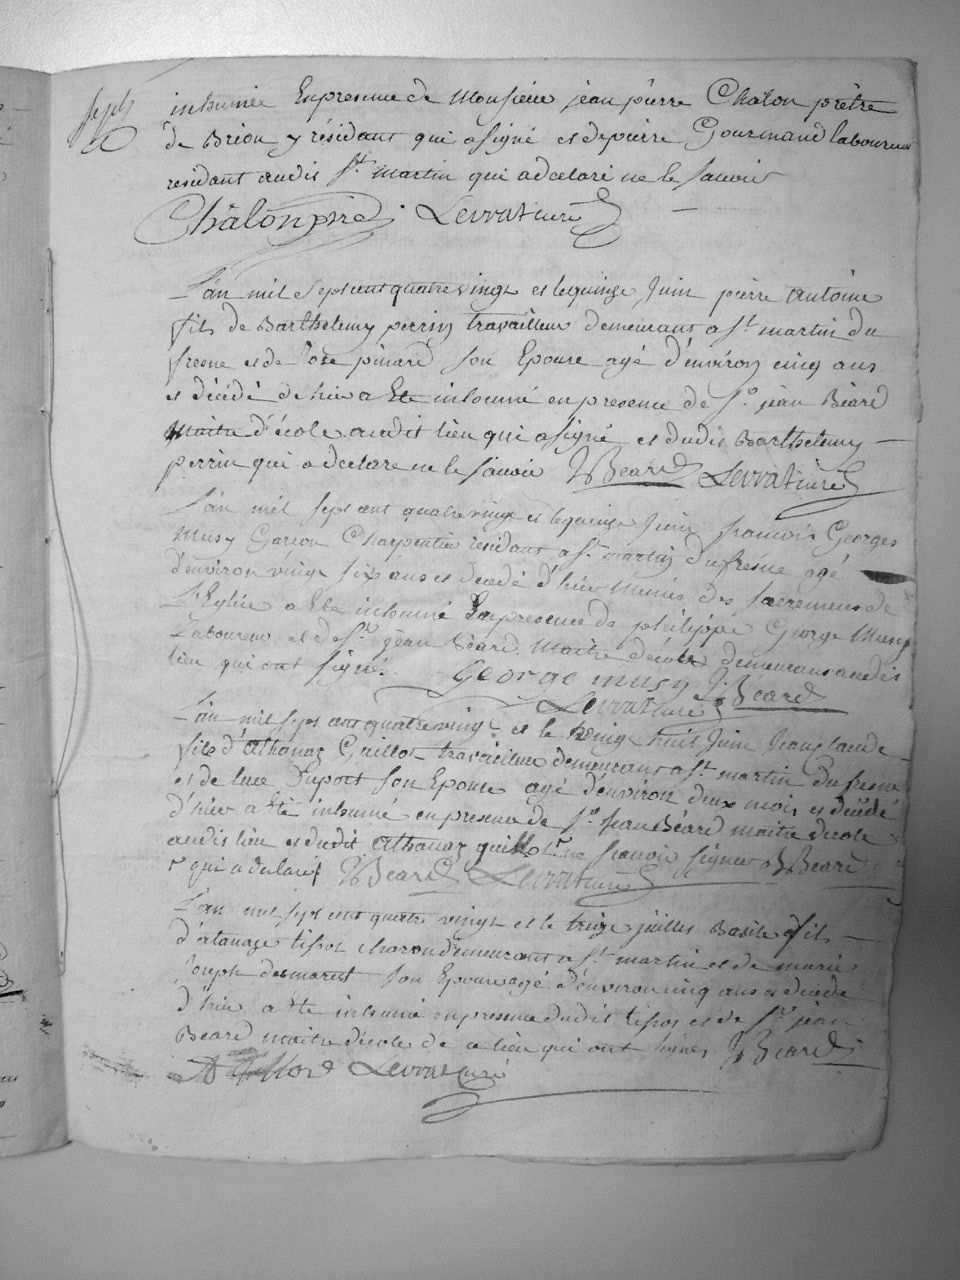 inhumée En presence de Monsieur jean pierre Chalon prêtre
de Brion y résidant qui a signé et de pierre Gourmand laboureur
residant audit St. martin qui a declaré ne le savoir
Châlon ptre Levrat curé
L'an mil sept cent quatre vingt et le quinze Juin pierre antoine
fils de Barthelemy perrin travailleur demeurant a St. martin du
fresne et de pinard son Epouse agé d'environ cinq ans
et décédé de hier a Ete inhumé en presence de Sr. jean Béard
Maitre d'école audit lieu qui a signé et dudit Barthelemy
perrin qui a declare ne le savoir JBeard Levrat curé
L'an mil sept cent quatre vingt et le quinze Juin francois Georges
Musy Garcon Charpentier résidant a St. martin du fresne agé
d'environ vingt six ans et decedé d'hier Munis des sacremens de
L'Eglise a Ete inhumé En presence de philippe George Musy
Laboureur et de Sr. jean Béard Maitre d'école demeurans audit
lieu qui ont signés. George musy J. Beard
Levrat curé
L'an mil sept cent quatre vingt et le vingt huit Juin Jean claude
fils d'Athanaz Guillot travailleur demeurant a St. martin du fresne
et de luce Dupont son Epouse agé d'environ deux mois et décédé
d'hier a été inhumé en presence de Sr. Jean Béard maitre d'ecole
audit lieu et dudit Athanaz guillot ne savoir signer JBeard
qui a declaré JBeard Levrat curé
L'an mil sept cent quatre vingt et le treize juillet Basile fils
d'atanaze tissot charon demeurant a St. martin et de marie
Joseph desmaret son Epouse agé d'environ cinq ans et décédé
d'hier a Ete inhumé en presence dudit tissot et de Sr. jean
Beard maitre d'école de ce lieu qui ont signés JBeard
Levrat curé